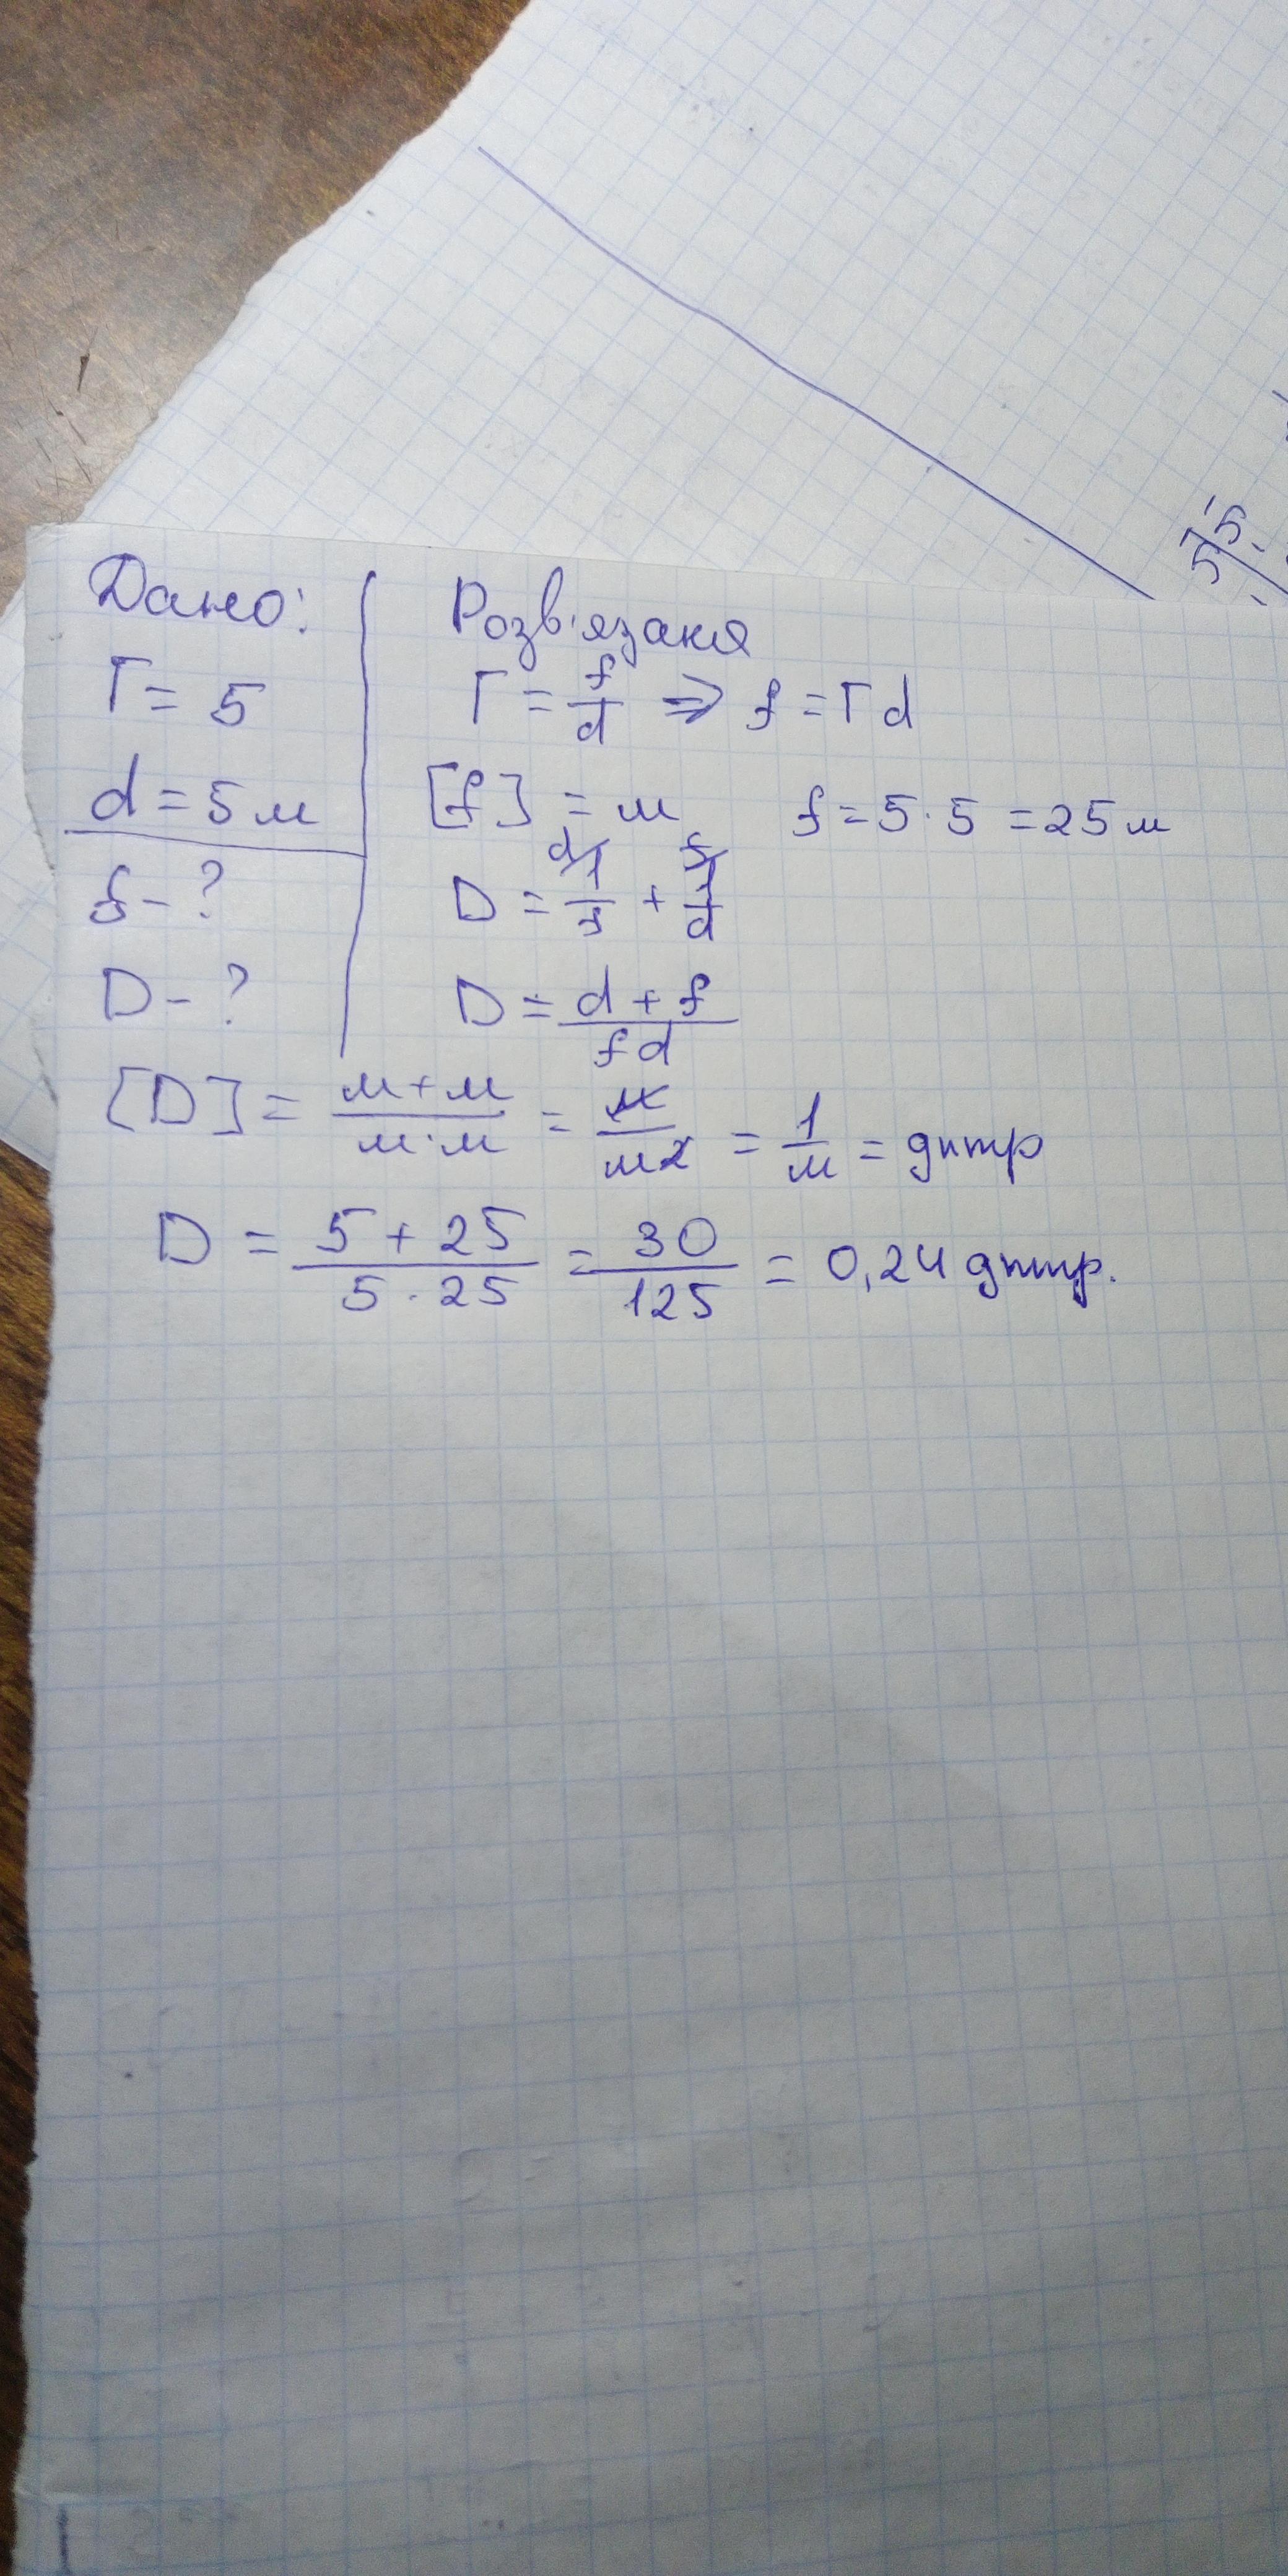 Дано:
Г = 5
d = 5 м
f - ?
D - ?
Розв'язаня
Г = f/d ⇒ f = Г d
[f] = м f = 5 · 5 = 25 м
D = 1/f + 1/d
D = (d + f)/(f d)
[D] = (м + м)/(м · м) = м/м2 = 1/м = дптр
D = (5 + 25)/(5 · 25) = 30/125 = 0,24 дптр.